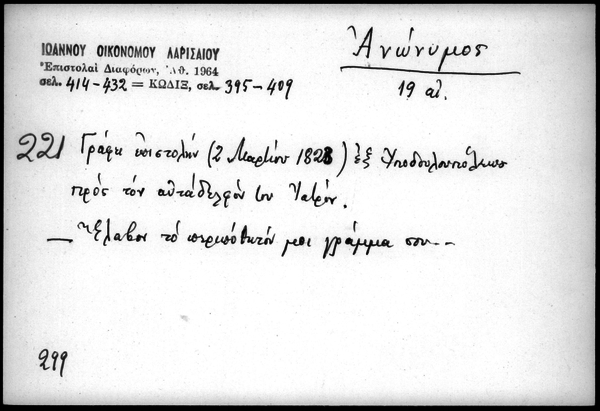 ΙΩΑΝΝΟΥ ΟΙΚΟΝΟΜΟΥ ΛΑΡΙΣΑΙΟΥ
Ἐπιστολαὶ Διαφόρων, Ἀθ. 1964
σελ. 414-432 = ΚΩΔΙΞ, σελ. 395-409
Ἀνώνυμος
19 αἰ.
221 Γράφει ἐπιστολήν (2 Μαρτίου 1823) ἐξ
πρός τόν αὐτάδελφόν του Ἰατρόν.
— Ἔλαβον τό περιπόθητόν μοι γράμμα σου--
299